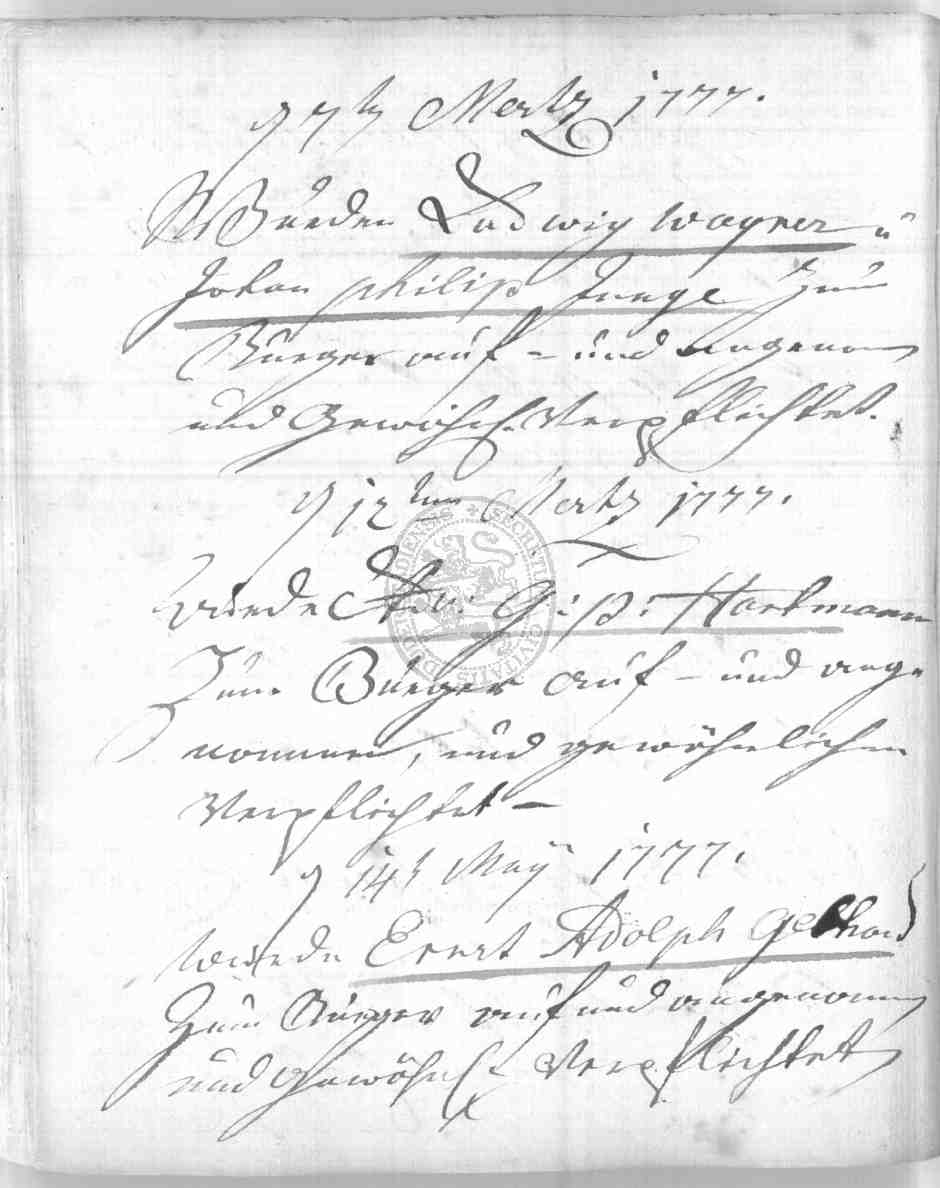 d 7t Mertz 1777.
Wurden Ludwig Wagner u
Johan philip Junge Zum
Bürger auf - und angenom
und Gewöhnl. Verpflichtet.
d 12ten Mertz 1777.
wurde Hartmann
Zum Bürger auf - und ange
nommen, und gewöhnlichen
Verpflichtet -
d 14t Maÿ 1777.
wurde Ernst Adolph
Zum Bürger auf und angenom
und Gewöhnl. Verpflichtet
SECRETUM CIVITATIS